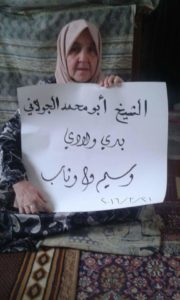 الشيخ أبو محمد الجولاني
بدي ولادي
وسيم و
٢٠١٦/٢/٢١